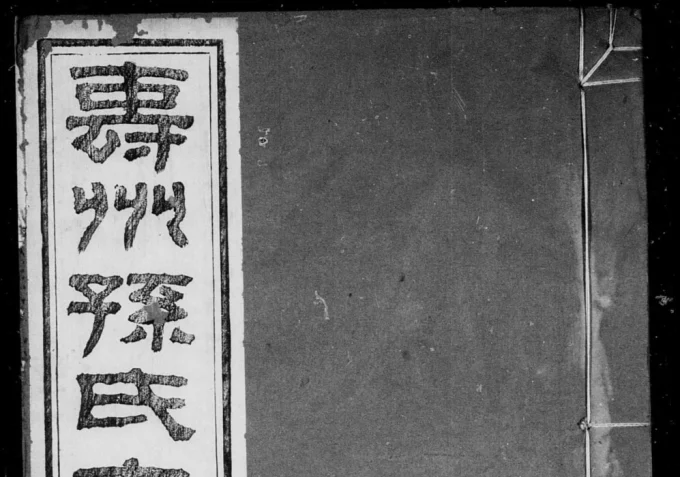 壽州孫氏